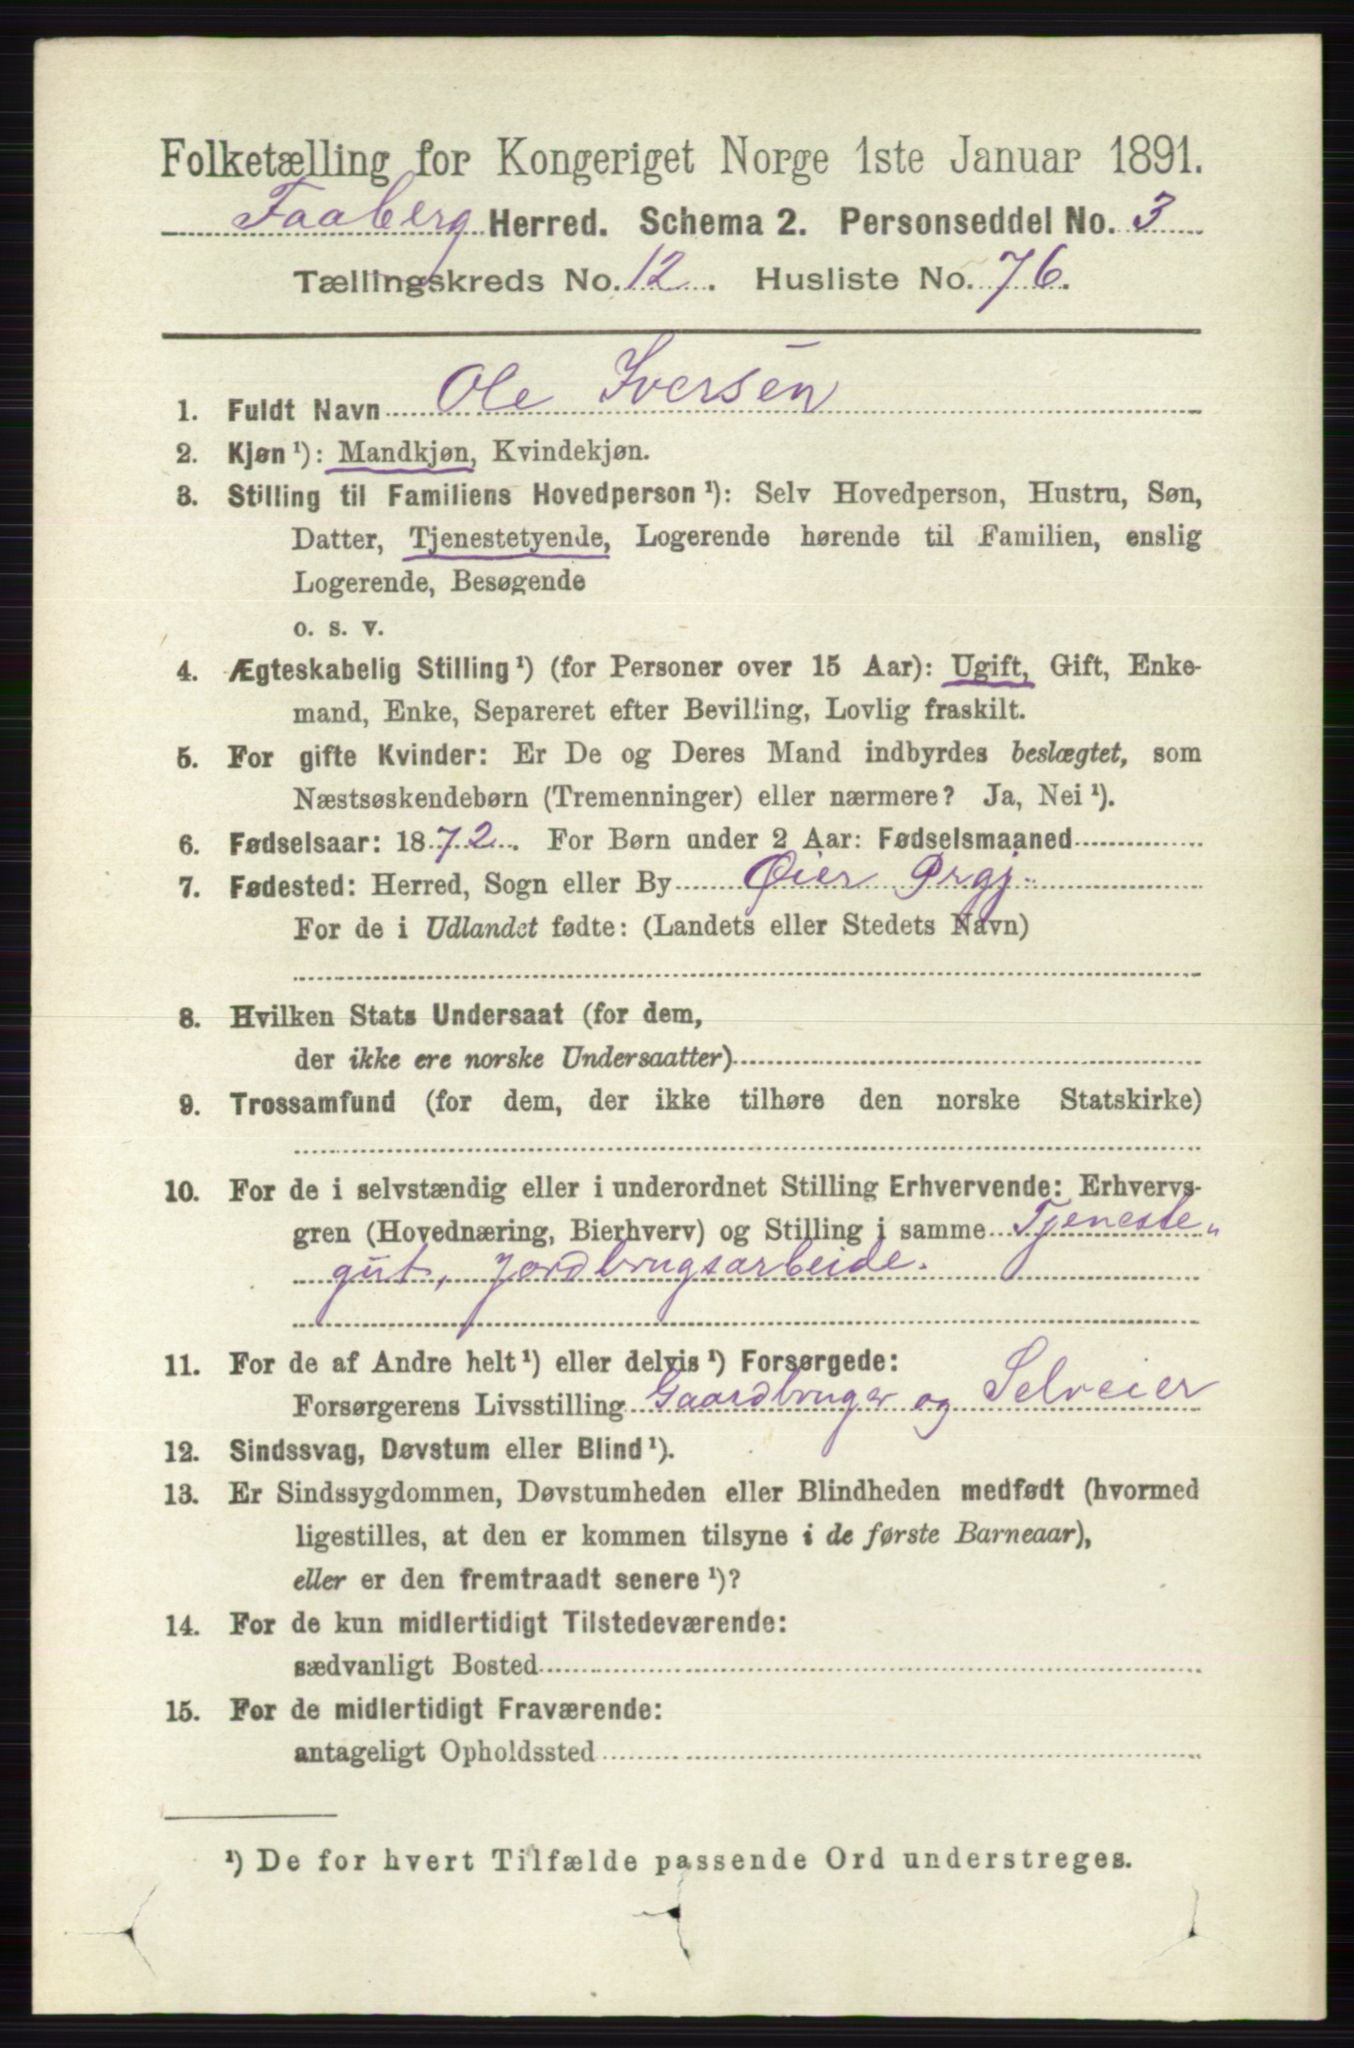 Folketælling for Kongeriget Norge 1ste Januar 1891.
Faaberg Herred. Schema 2. Personseddel No. 3
Tællingskreds No. 12. Husliste No. 76.
1. Fuldt Navn Ole Iversen
2. Kjøn¹): Mandkjøn, Kvindekjøn.
3. Stilling til Familiens Hovedperson¹): Selv Hovedperson, Hustru, Søn,
Datter, Tjenestetyende, Logerende hørende til Familien, enslig
Logerende, Besøgende
o. s. v.
4. Ægteskabelig Stilling¹) (for Personer over 15 Aar): Ugift, Gift, Enke-
mand, Enke, Separeret efter Bevilling, Lovlig fraskilt.
5. For gifte Kvinder: Er De og Deres Mand indbyrdes beslægtet, som
Næstsøskendebørn (Tremenninger) eller nærmere? Ja, Nei¹).
6. Fødselsaar: 1872. For Børn under 2 Aar: Fødselsmaaned
7. Fødested: Herred, Sogn eller By Øier Prgj.
For de i Udlandet fødte: (Landets eller Stedets Navn)
8. Hvilken Stats Undersaat (for dem,
der ikke ere norske Undersaatter)
9. Trossamfund (for dem, der ikke tilhøre den norske Statskirke)
10. For de i selvstændig eller i underordnet Stilling Erhvervende: Erhvervs-
gren (Hovednæring, Bierhverv) og Stilling i samme Tjeneste„
gut, Jordbrugsarbeide.
11. For de af Andre helt¹) eller delvis¹) Forsørgede:
Forsørgerens Livsstilling Gaardbruger og Selveier
12. Sindssvag, Døvstum eller Blind¹).
13. Er Sindssygdommen, Døvstumheden eller Blindheden medfødt (hvormed
ligestilles, at den er kommen tilsyne i de første Barneaar),
eller er den fremtraadt senere¹)?
14. For de kun midlertidigt Tilstedeværende:
sædvanligt Bosted
15. For de midlertidigt Fraværende:
antageligt Opholdssted
¹) De for hvert Tilfælde passende Ord understreges.